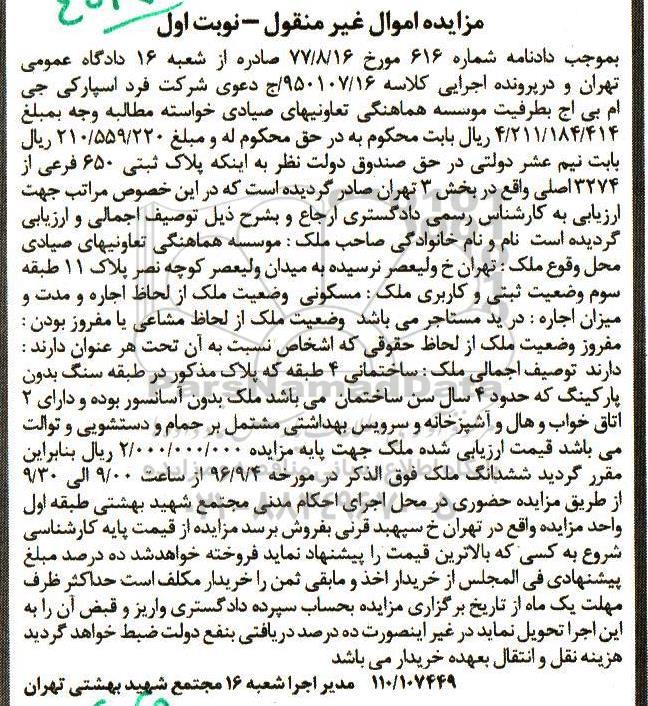 مزایده اموال غیر منقول – نوبت اول
بموجب دادنامه شماره ۶۱۶ مورخ ۷۷/۸/۱۶ صادره از شعبه ۱۶ دادگاه عمومی
تهران و درپرونده اجرایی کلاسه ۹۵۰۱۰۷/۱۶/ج دعوی شرکت فرد اسپارکی جی
ام بی اج بطرفیت موسسه هماهنگی تعاونیهای صیادی خواسته مطالبه وجه بمبلغ
۴/۲۱۱/۱۸۴/۴۱۴ ریال بابت محکوم به در حق محکوم له و مبلغ ۲۱۰/۵۵۹/۲۲۰ ریال
بابت نیم عشر دولتی در حق صندوق دولت نظر به اینکه پلاک ثبتی ۶۵۰ فرعی از
۳۲۷۴اصلی واقع در بخش ۳ تهران صادر گردیده است که در این خصوص مراتب جهت
ارزیابی به کارشناس رسمی دادگستری ارجاع و بشرح ذیل توصیف اجمالی و ارزیابی
گردیده است نام و نام خانوادگی صاحب ملک : موسسه هماهنگی تعاونیهای صیادی
محل وقوع ملک : تهران خ ولیعصر نرسیده به میدان ولیعصر کوچه نصر پلاک ۱۱ طبقه
سوم وضعیت ثبتی و کاربری ملک : مسکونی وضعیت ملک از لحاظ اجاره و مدت و
میزان اجاره : در ید مستاجر می باشد وضعیت ملک از لحاظ مشاعی یا مفروز بودن :
مفروز وضعیت ملک از لحاظ حقوقی که اشخاص نسبت به آن تحت هر عنوان دارند :
دارند توصیف اجمالی ملک : ساختمانی ۴ طبقه که پلاک مذکور در طبقه سنگ بدون
پارکینگ که حدود ۴ سال سن ساختمان می باشد ملک بدون آسانسور بوده و دارای ۲
اتاق خواب و هال و آشپزخانه و سرویس بهداشتی مشتمل بر حمام و دستشویی و توالت
می باشد قیمت ارزیابی شده ملک جهت پایه مزایده ۲/۰۰۰/۰۰۰/۰۰۰ ریال بنابراین
مقرر گردید ششدانگ ملک فوق الذکر در مورخه ۹۶/۹/۴ از ساعت ۹/۰۰ الی ۹/۳۰
از طریق مزایده حضوری در محل اجرای احکام مدنی مجتمع شهید بهشتی طبقه اول
واحد مزایده واقع در تهران خ سپهبد قرنی بفروش برسد مزایده از قیمت پایه کارشناسی
شروع به کسی که بالاترین قیمت را پیشنهاد نماید فروخته خواهدشد ده درصد مبلغ
پیشنهادی فی المجلس از خریدار اخذ و مابقی ثمن را خریدار مکلف است حداکثر ظرف
مهلت یک ماه از تاریخ برگزاری مزایده بحساب سپرده دادگستری واریز و قبض آن را به
این اجرا تحویل نماید در غیر اینصورت ده درصد دریافتی بنفع دولت ضبط خواهد گردید
هزینه نقل و انتقال بعهده خریدار می باشد
۱۱۰/۱۰۷۴۴۹ مدیر اجرا شعبه ۱۶ مجتمع شهید بهشتی تهران
ParsNamadData